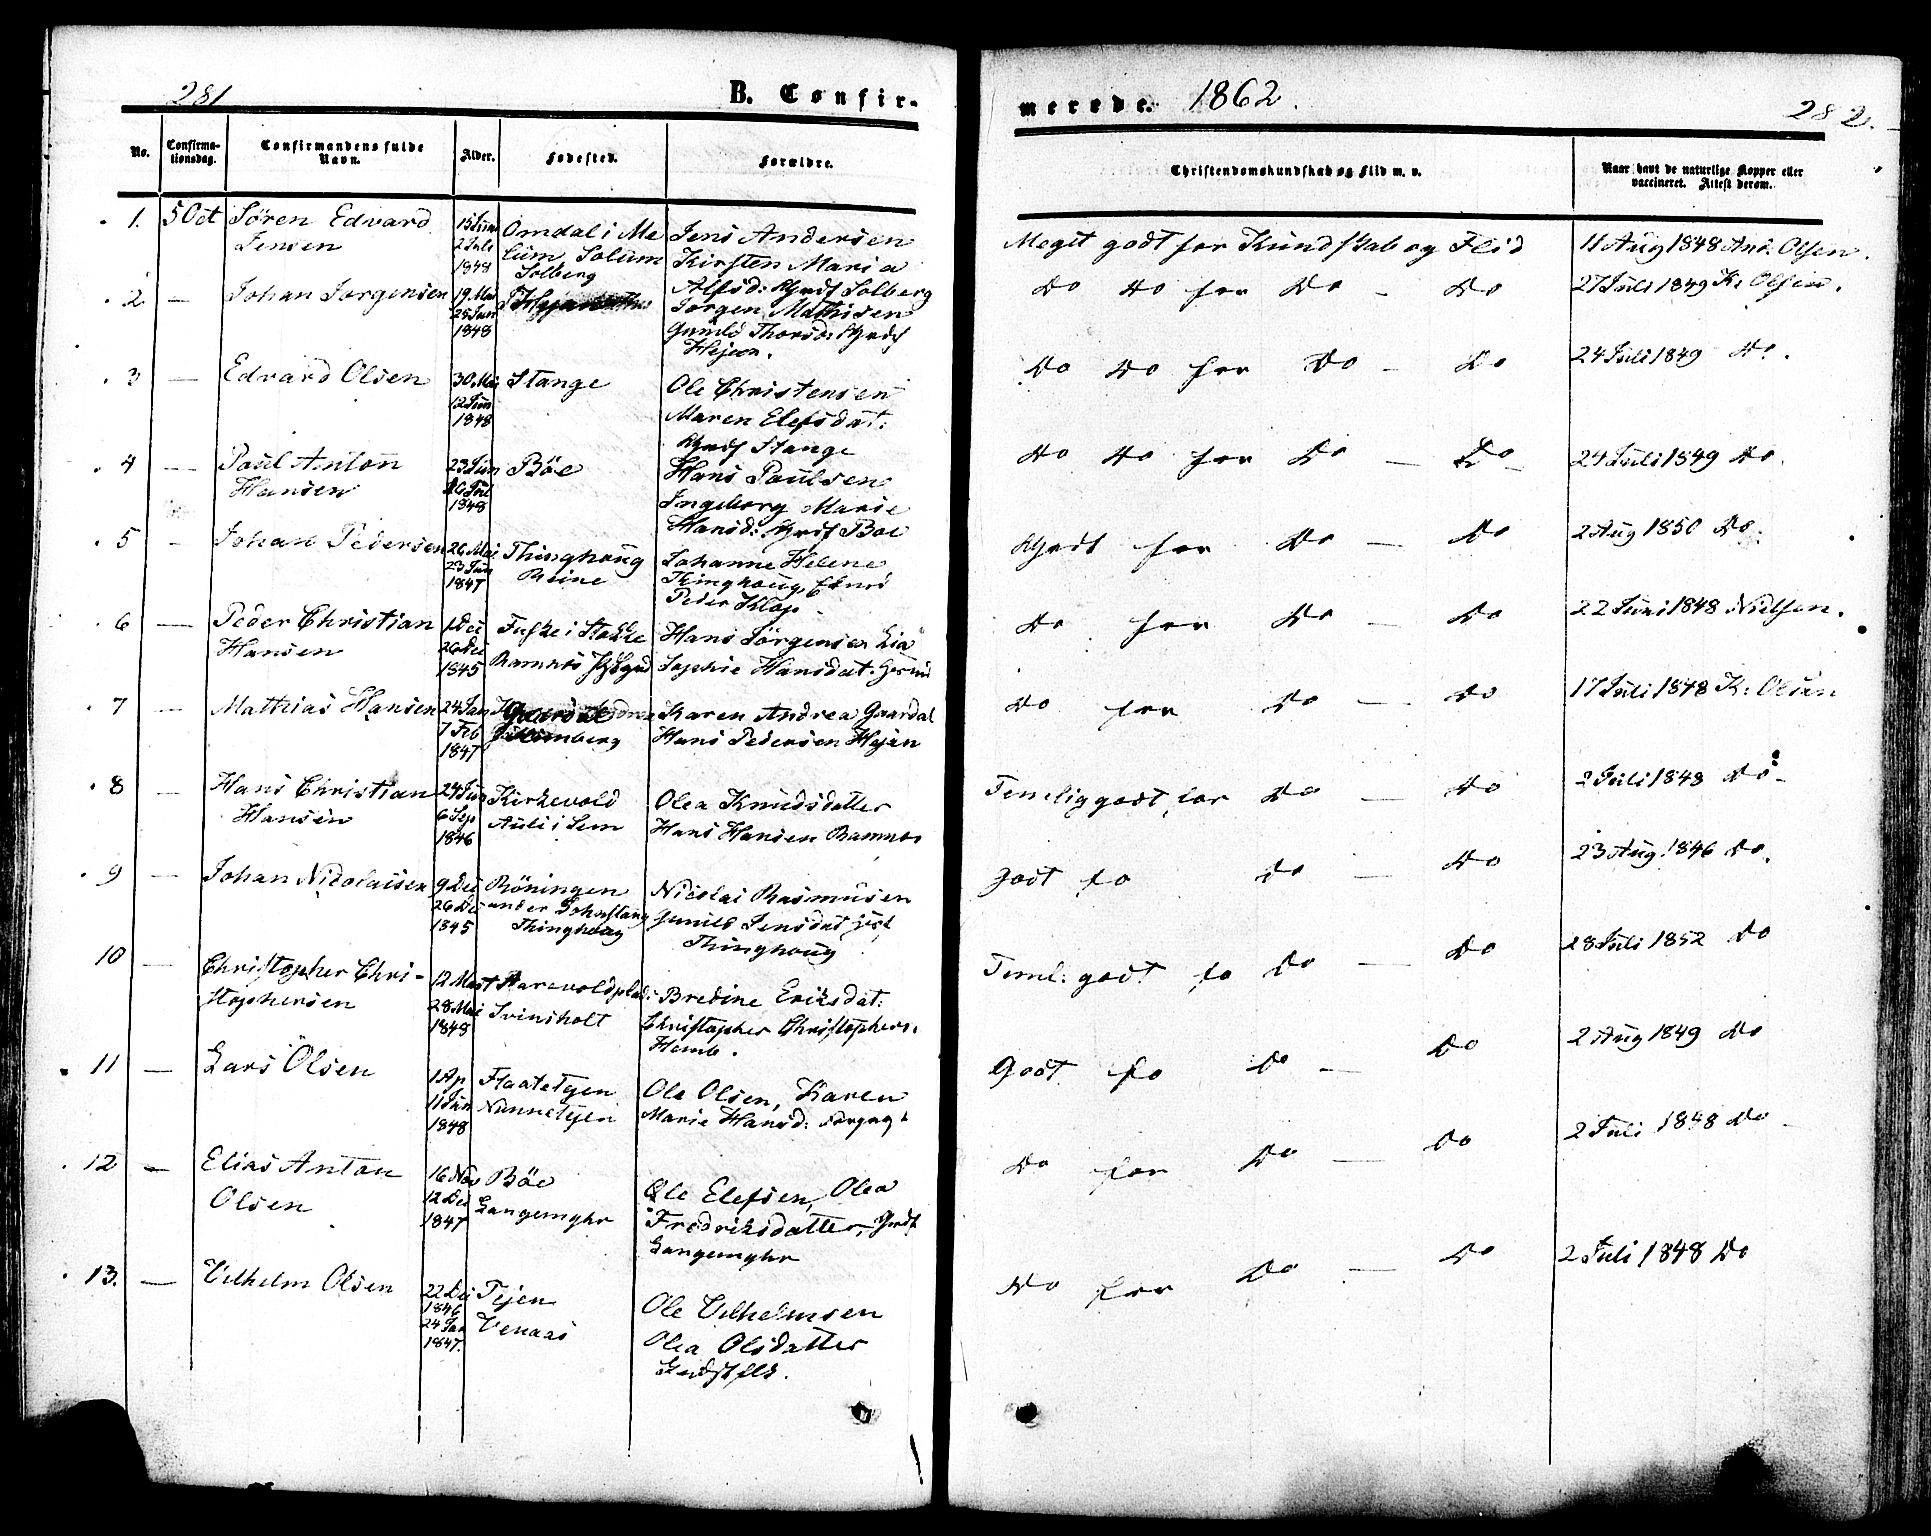 281
B. Confir-
No.
Confirma-
tionsdag.
Confirmandens fulde
Navn.
Alder.
Fødested.
Forældre.
1. 5 Oct Søren Edvard
Jensen
2 Juli
1848
Omdal i Me
lum, Solum
Solberg
Jens Andersen
Kirsten Maria
Alfsd: Solberg
2 — Johan Jørgensen
19 Mai
25 Jun
1848
Jørgen Mathisen
Gunild Thorsd:
3 — Edvard Olsen
30 Mai
12 Jun
1848
Stange
Ole Christensen
Maren Elefsdat:
Stange
4 — Paul Anton
Hansen
23 Jun
1848
Böe
Hans Paulsen
Ingeborg Marie
Hansd: Boe
5 - Johan Pedersen
26 Mai
23 Jun
1847
Thinghoug
Reine
Johanne Helene
Peder Klop
6 — Peder Christian
Hansen
1 Dec
26 Dec
1845
i Stokke
Ramnes
Hans Jörgensen Lia
Sophie Hansdat.
7 — Mathias Hansen
24 Jan
7 Feb
1847
Karen Andrea Gaardal
Hans Pedersen Hejan
8 — Hans Christian
Hansen
24 Jun
6 Sep
1846
Kirkevold
Auli i Sem
Olea Knudsdatter
Hans Hansen Ramnes
9 — Johan Nicolaisen
9 Dec
26 Dec
1845
Röningen
under
Thinghoug
Nicolai Rasmussen
Gunild Jensdat
Thinghoug
10 — Christopher Chri-
stophersen
12 Mart
28 Mai
1848
Harevoldplads
Svinsholt
Bredine Eriksdat:
Christopher Christophers.
Hemb.
11 — Lars Olsen
1 Ap
11 Jun
1848
Flaatetejen
Nunnetejen
Ole Olsen, Karen
Marie Hansd:
12 — Elias Anton
Olsen
16 Nov
12 Dec
1847
Böe
Langemyhr
Ole Elefsen, Olea
Fredriksdatter,
Langemyhr
13. — Vilhelm Olsen
22 Dec
1846
24 Jan
1847.
Tejen
Venaas
Ole Vilhelmsen
Olea Olsdatter
merede. 1862.
282.
Christendomskundskab og Flid m. v.
Naar havt de naturlige Kopper eller
vaccineret. Attest derom.
Meget godt for Kundskab og Flid 11 Aug 1848 And. Olsen.
Do Do for Do — Do 27 Juli 1849 K. Olsen.
Do Do for Do — Do 24 Juli 1849 Do.
Do Do for Do — Do 24 Juli 1849 Do.
for Do — Do 2 Aug 1850 Do.
Do for Do — Do 22 Juni 1848 Nielsen.
Do for Do — Do 17 Juli 1848 K. Olsen
Temlig godt for Do — Do 2 Juli 1848 Do
Godt fo Do — Do 23 Aug. 1846 Do.
Teml: godt fo Do — Do 28 Juli 1852 Do
Godt fo Do — Do 2 Aug 1849 Do
Do for Do — Do 2 Juli 1848 Do
Do for Do — Do 2 Juli 1848 Do